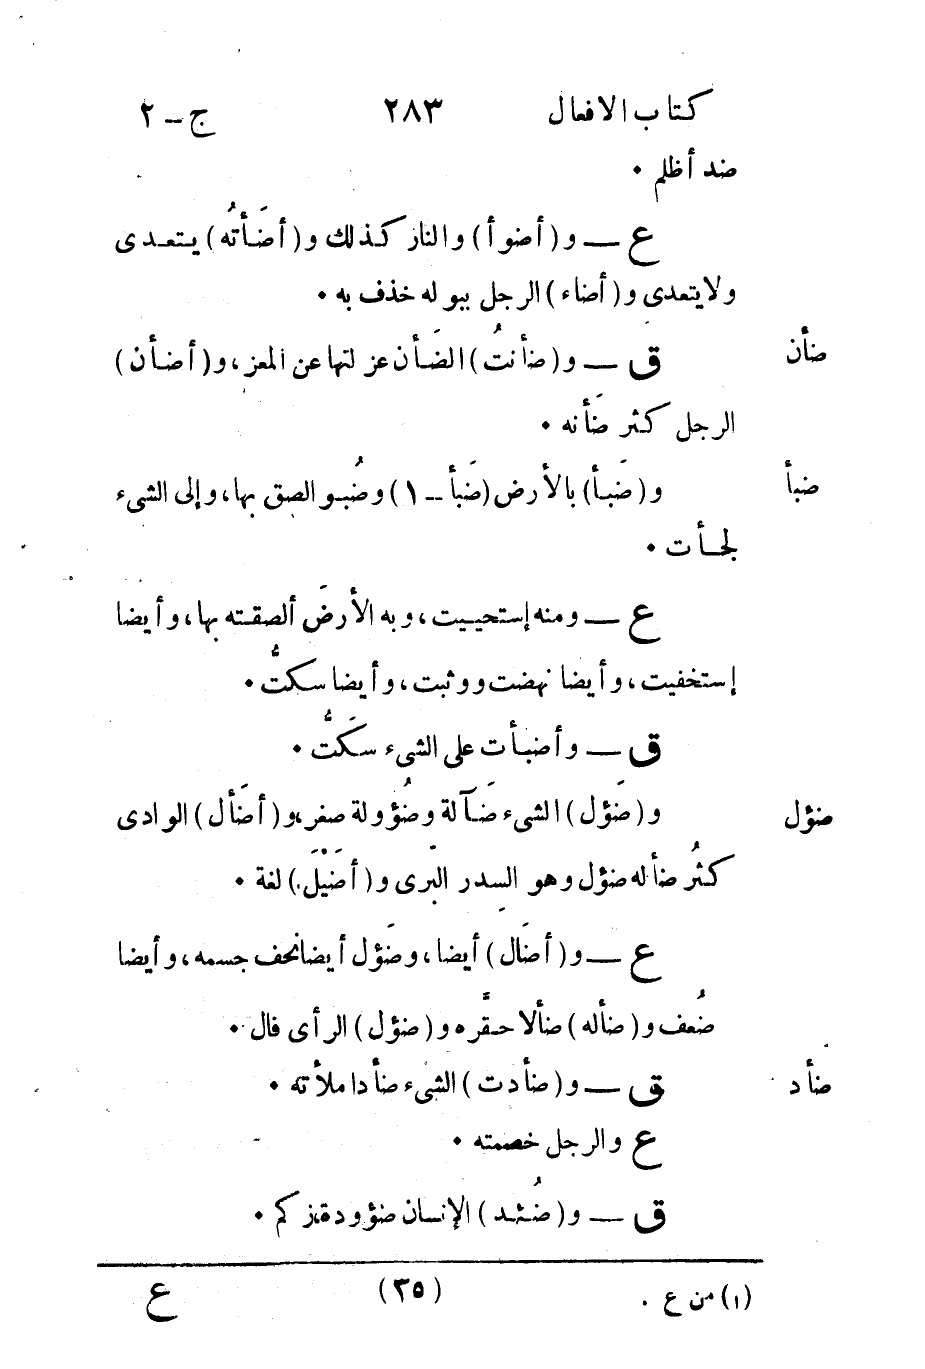 كتاب الافعال ٢٨٣ ج – ٢
ضد أظلم ٠
ع — و (أضوأ) والنار كذلك و (أضَأتُه) يتعدى
ولا يتعدى و (أضاء) الرجل ببوله خذف به ٠
ضأن ق — و (ضأنتُ) الضَأن عزلتها عن المعز، و (أضأن)
الرجل كثر ضَأنه ٠
ضبأ و (ضَبأ) بالأرض (ضَبأ – ١) وضُبوا لصق بها، وإلى الشىء
لجأت ٠
ع — ومنه إستحييت، وبه الأرضَ ألصقته بها، وأيضا
إستخفيت، وأيضا نهضت ووثبت، وأيضا سكتُّ ٠
ق — وأضبأت على الشىء سَكتُّ ٠
ضؤل و (ضَؤل) الشىء ضَآلة وضُؤولة صغر، و (أضَأل) الوادى
كثُر ضأله ضؤل وهو السدر البَرى و (أضَيْلَ) لغة ٠
ع — و (أضَال) أيضا، وضَؤل أيضا نحف جسمه، وأيضا
ضُعف و (ضأله) ضألا حقَّره و (ضؤل) الرأى فال ٠
ضأد ق — و (ضأدت) الشىء ضأدا ملأته ٠
ع والرجل خصمته ٠
ق — و (ضُئد) الإنسان ضؤودة، زكم ٠
(١) من ع . (٣٥) ع